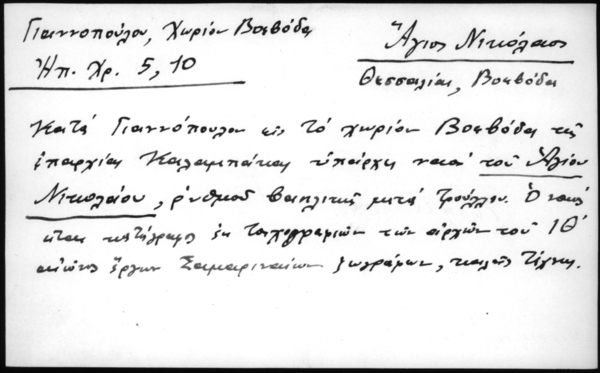 Γιαννοπούλου, Χωρίον Βοεβόδα
Ἠπ. Χρ. 5, 10
Ἅγιος Νικόλαος
Θεσσαλίας, Βοεβόδα
Κατὰ Γιαννόπουλον εἰς τὸ χωρίον Βοεβόδα τῆς
ἐπαρχίας Καλαμπάκας ὑπάρχει ναὸς τοῦ Ἁγίου
Νικολάου, ῥυθμοῦ βασιλικῆς μετὰ τρούλλου. Ὁ ναὸς
εἶναι κατάγραφος ἐκ τοιχογραφιῶν τῶν ἀρχῶν τοῦ ΙΘ΄
αἰῶνος ἔργων Σαμαριναίων ζωγράφων, καλῆς τέχνης.